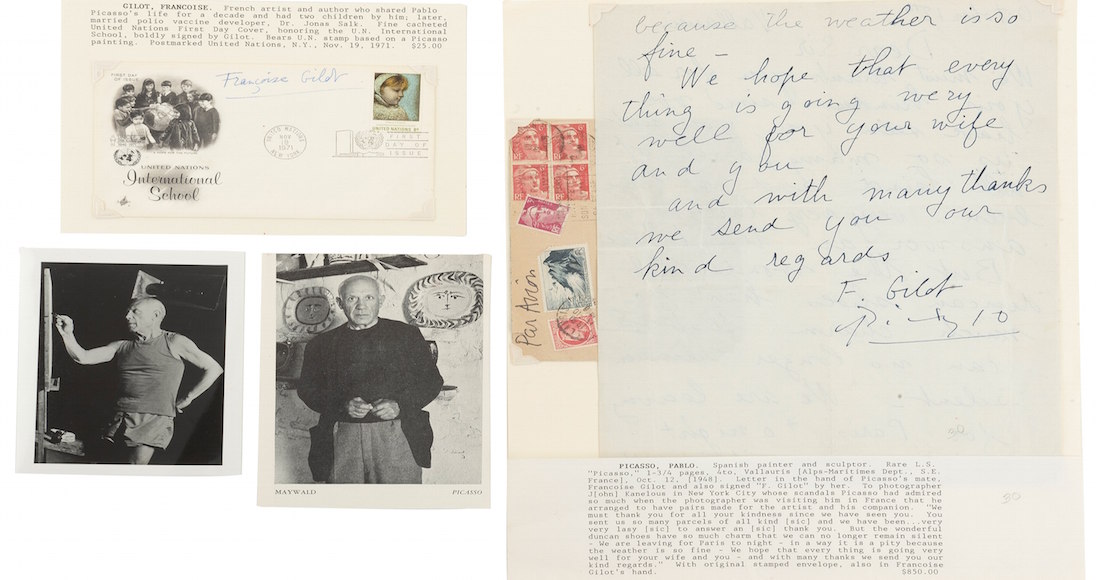 GILOT, FRANCOISE. French artist and author who shared Pablo
Picasso's life for a decade and had two children by him; later,
married polio vaccine developer, Dr. Jonas Salk. Fine cacheted
United Nations First Day Cover, honoring the U.N. International
School, boldly signed by Gilot. Bears U.N. stamp based on a Picasso
painting. Postmarked United Nations, N.Y., Nov. 19, 1971. $25.00
FIRST DAY
OF ISSUE
Françoise Gilot
UNITED NATIONS
NOV
19
1971
NEW YORK
UNITED NATIONS 8c
FIRST
DAY OF
ISSUE
UNITED NATIONS
International
School
MAYWALD
PICASSO
because the weather is so
fine -
We hope that every
thing is going wery
well for your wife
and you
and with many thanks
we send you our
kind regards
F. Gilot
Picasso
RF
Par Avion
30
PICASSO, PABLO. Spanish painter and sculptor. Rare L.S.
"Picasso," 1-3/4 pages, 4to, Vallauris [Alps-Maritimes Dept., S.E.
France], Oct. 12, [1948]. Letter in the hand of Picasso's mate,
Francoise Gilot and also signed "F. Gilot" by her. To photographer
J[ohn] Kanelous in New York City whose scandals Picasso had admired
so much when the photographer was visiting him in France that he
arranged to have pairs made for the artist and his companion. "We
must thank you for all your kindness since we have seen you. You
sent us so many parcels of all kind [sic] and we have been...very
very lasy [sic] to answer an [sic] thank you. But the wonderful
duncan shoes have so much charm that we can no longer remain silent
- We are leaving for Paris to night - in a way it is a pity because
the weather is so fine - We hope that every thing is going very
well for your wife and you - and with many thanks we send you our
kind regards." With original stamped envelope, also in Francoise
Gilot's hand. $850.00
30